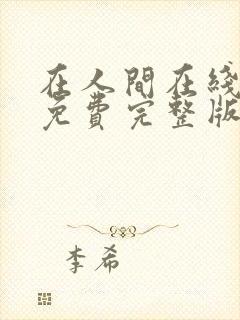 在人間在綫
免費完整版
李希